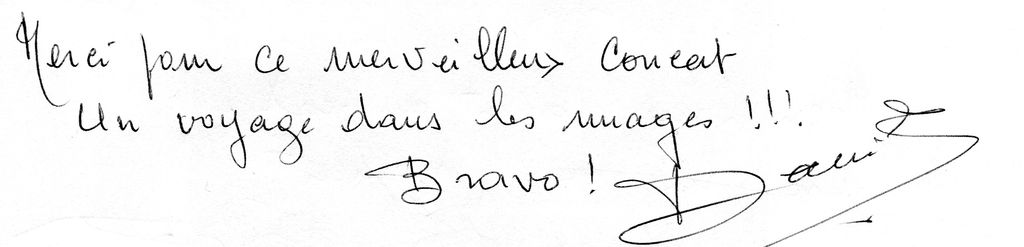 Merci pour ce merveilleux concert
Un voyage dans les nuages !!!
Bravo !